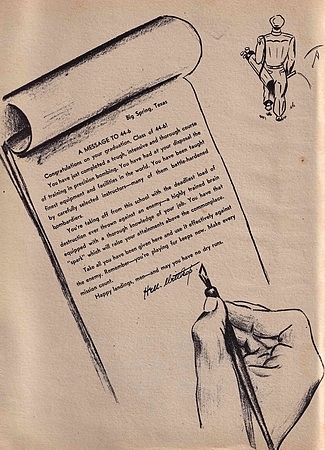 Big Spring, Texas
A MESSAGE TO 44-6
Congratulations on your graduation, Class of 44-6!
You have just completed a tough, intensive and thorough course
of training in precision bombing. You have had at your disposal the
finest equipment and facilities in the world. You have been taught
by carefully selected instructors—many of them battle-hardened
bombardiers.
You're taking off from this school with the deadliest load of
destruction ever thrown against an enemy—a highly trained brain
equipped with a thorough knowledge of your job. You have that
"spark" which will raise your attainments above the commonplace.
Take all you have been given here and use it effectively against
the enemy. Remember—you're playing for keeps now. Make every
mission count.
Happy landings, men—and may you have no dry runs.